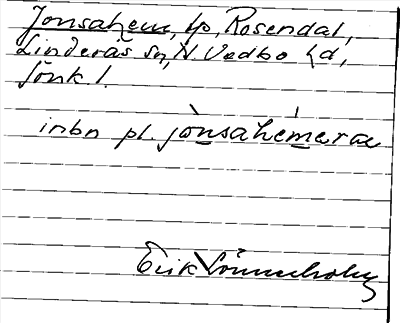 Jonsahem, tp, Rosendal,
Linderås sn, N. Vedbo hd,
Jönk l.
inbn pl. jònsahémeræ
Erik Lönnerholm